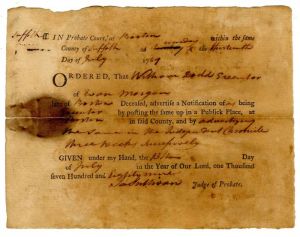 Suffolk ss. IN Probate Court, at Boston within the same
County of Suffolk on the thirteenth
Day of July 1789
ORDERED, That William Dodd Executor
of Evan Morgan
late of Boston Deceased, advertise a Notification of his being
Executor by posting the same up in a Publick Place, at
in said County, and by advertising
the same in the Independent Chronicle
three Weeks successively
GIVEN under my Hand, the Day
of July in the Year of Our Lord, one Thousand
seven Hundred and Eighty nine
Judge of Probate.